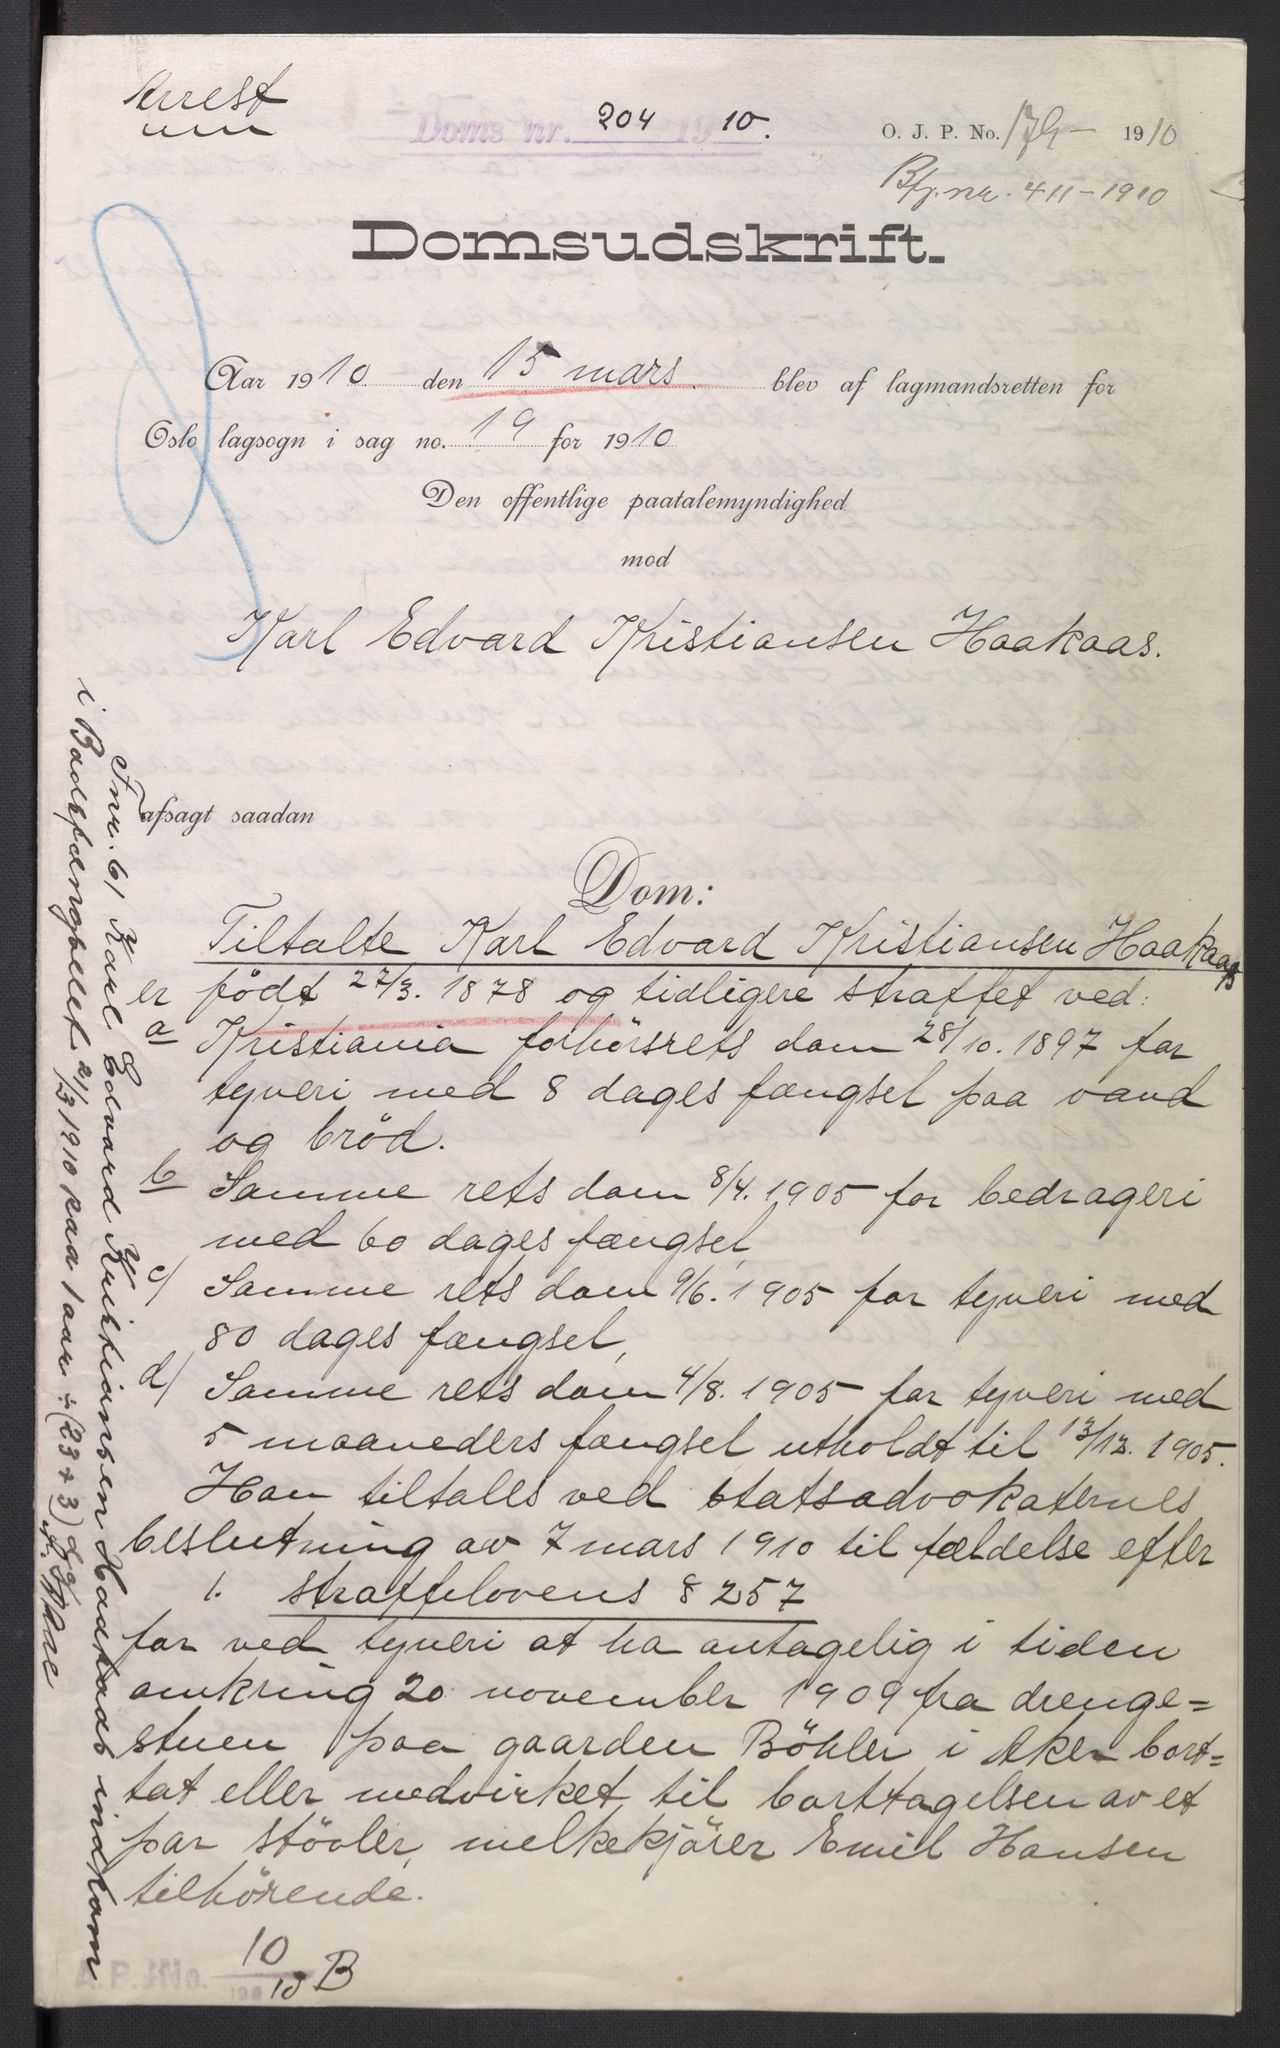 Arrest
Doms nr. 204 1910.
O. J. P. No. 179 - 1910
Bfj. nr. 411 - 1910
Domsudskrift.
Aar 1910 den 15 mars. blev af lagmandsretten for
Oslo lagsogn i sag no. 19 for 1910
Den offentlige paatalemyndighed
mod
Karl Edvard Kristiansen Haakaas.
afsagt saadan
Dom:
Tiltalte Karl Edvard Kristiansen Haakaas
er født 27/3. 1878 og tidligere straffet ved:
a Kristiania forhörsrets dom 28/10. 1897 for
tyveri med 8 dages fængsel paa vand
og bröd.
b Samme rets dom 8/4. 1905 for bedrageri
med 60 dages fængsel,
c/ Samme rets dom 9/6. 1905 for tyveri med
80 dages fængsel,
d/ Samme rets dom 4/8. 1905 for tyveri med
5 maaneders fængsel utholdt til 13/12. 1905.
Han tiltales ved statsadvokaternes
beslutning av 7 mars 1910 til fældelse efter
1. straffelovens § 257
for ved tyveri at ha antagelig i tiden
omkring 20 november 1909 fra drenge=
stuen paa gaarden Böhler i Aker bort=
tat eller medvirket til borttagelsen av et
par stövler, melkekjörer Emil Hansen
tilhörende.
A. P. J No. 10/10 B
Fnr. 61 Karl Edvard Kristiansen Haakaas indkom
i Bodsfængslet 21/3 1910 paa 1 aar ÷ (23 + 3) dage